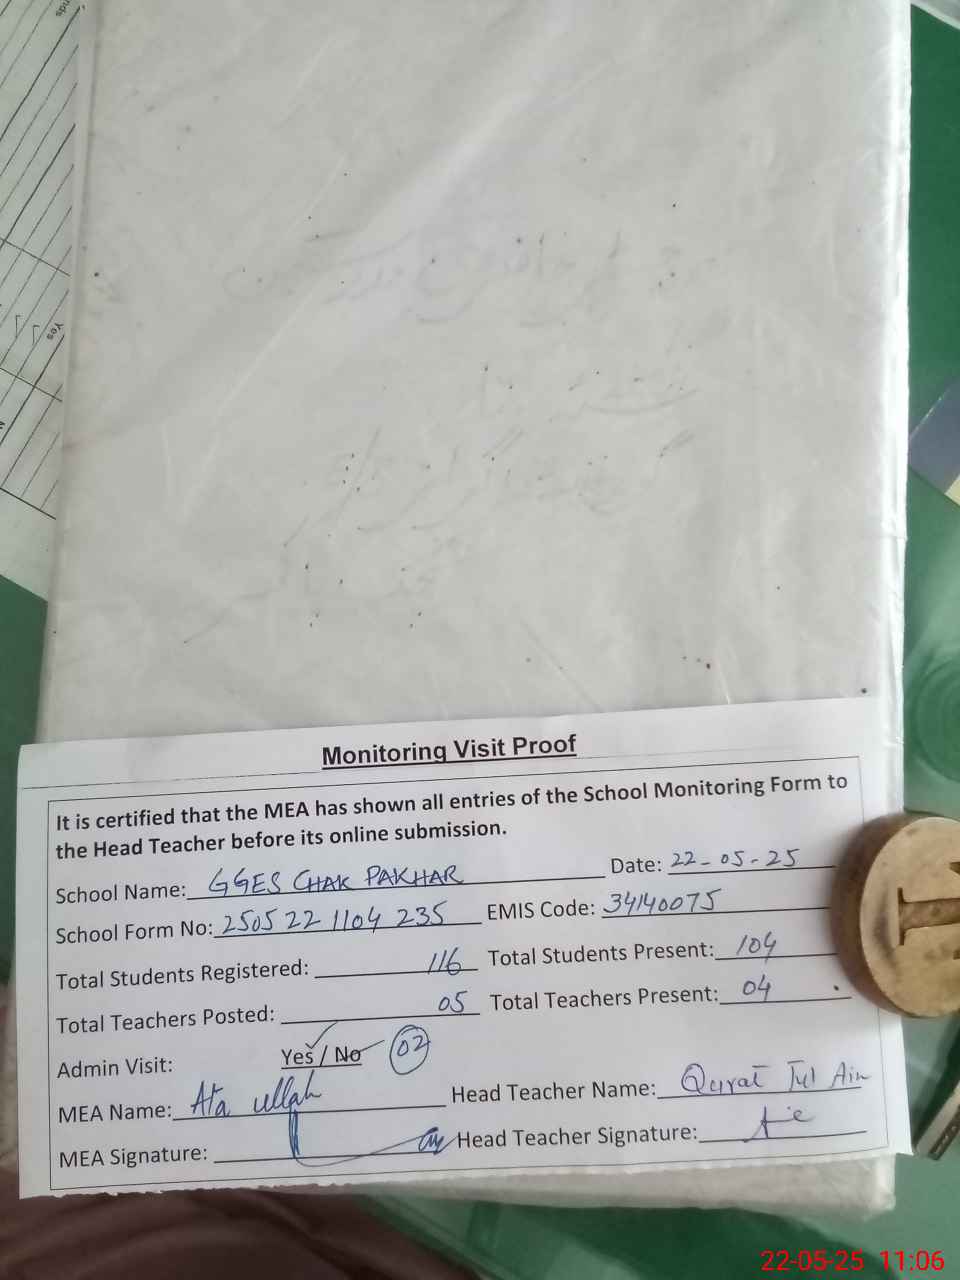 nds
Yes
Monitoring Visit Proof
It is certified that the MEA has shown all entries of the School Monitoring Form to
the Head Teacher before its online submission.
School Name: GGES CHAK PAKHAR Date: 22-05-25
School Form No: 2505 22 1104 235 EMIS Code: 34140075
Total Students Registered: 116 Total Students Present: 104
Total Teachers Posted: 05 Total Teachers Present: 04
Admin Visit: Yes / No 02
MEA Name: Ata ullah Head Teacher Name: Qurat Tul Ain
MEA Signature: Head Teacher Signature:
22-05-25 11:06